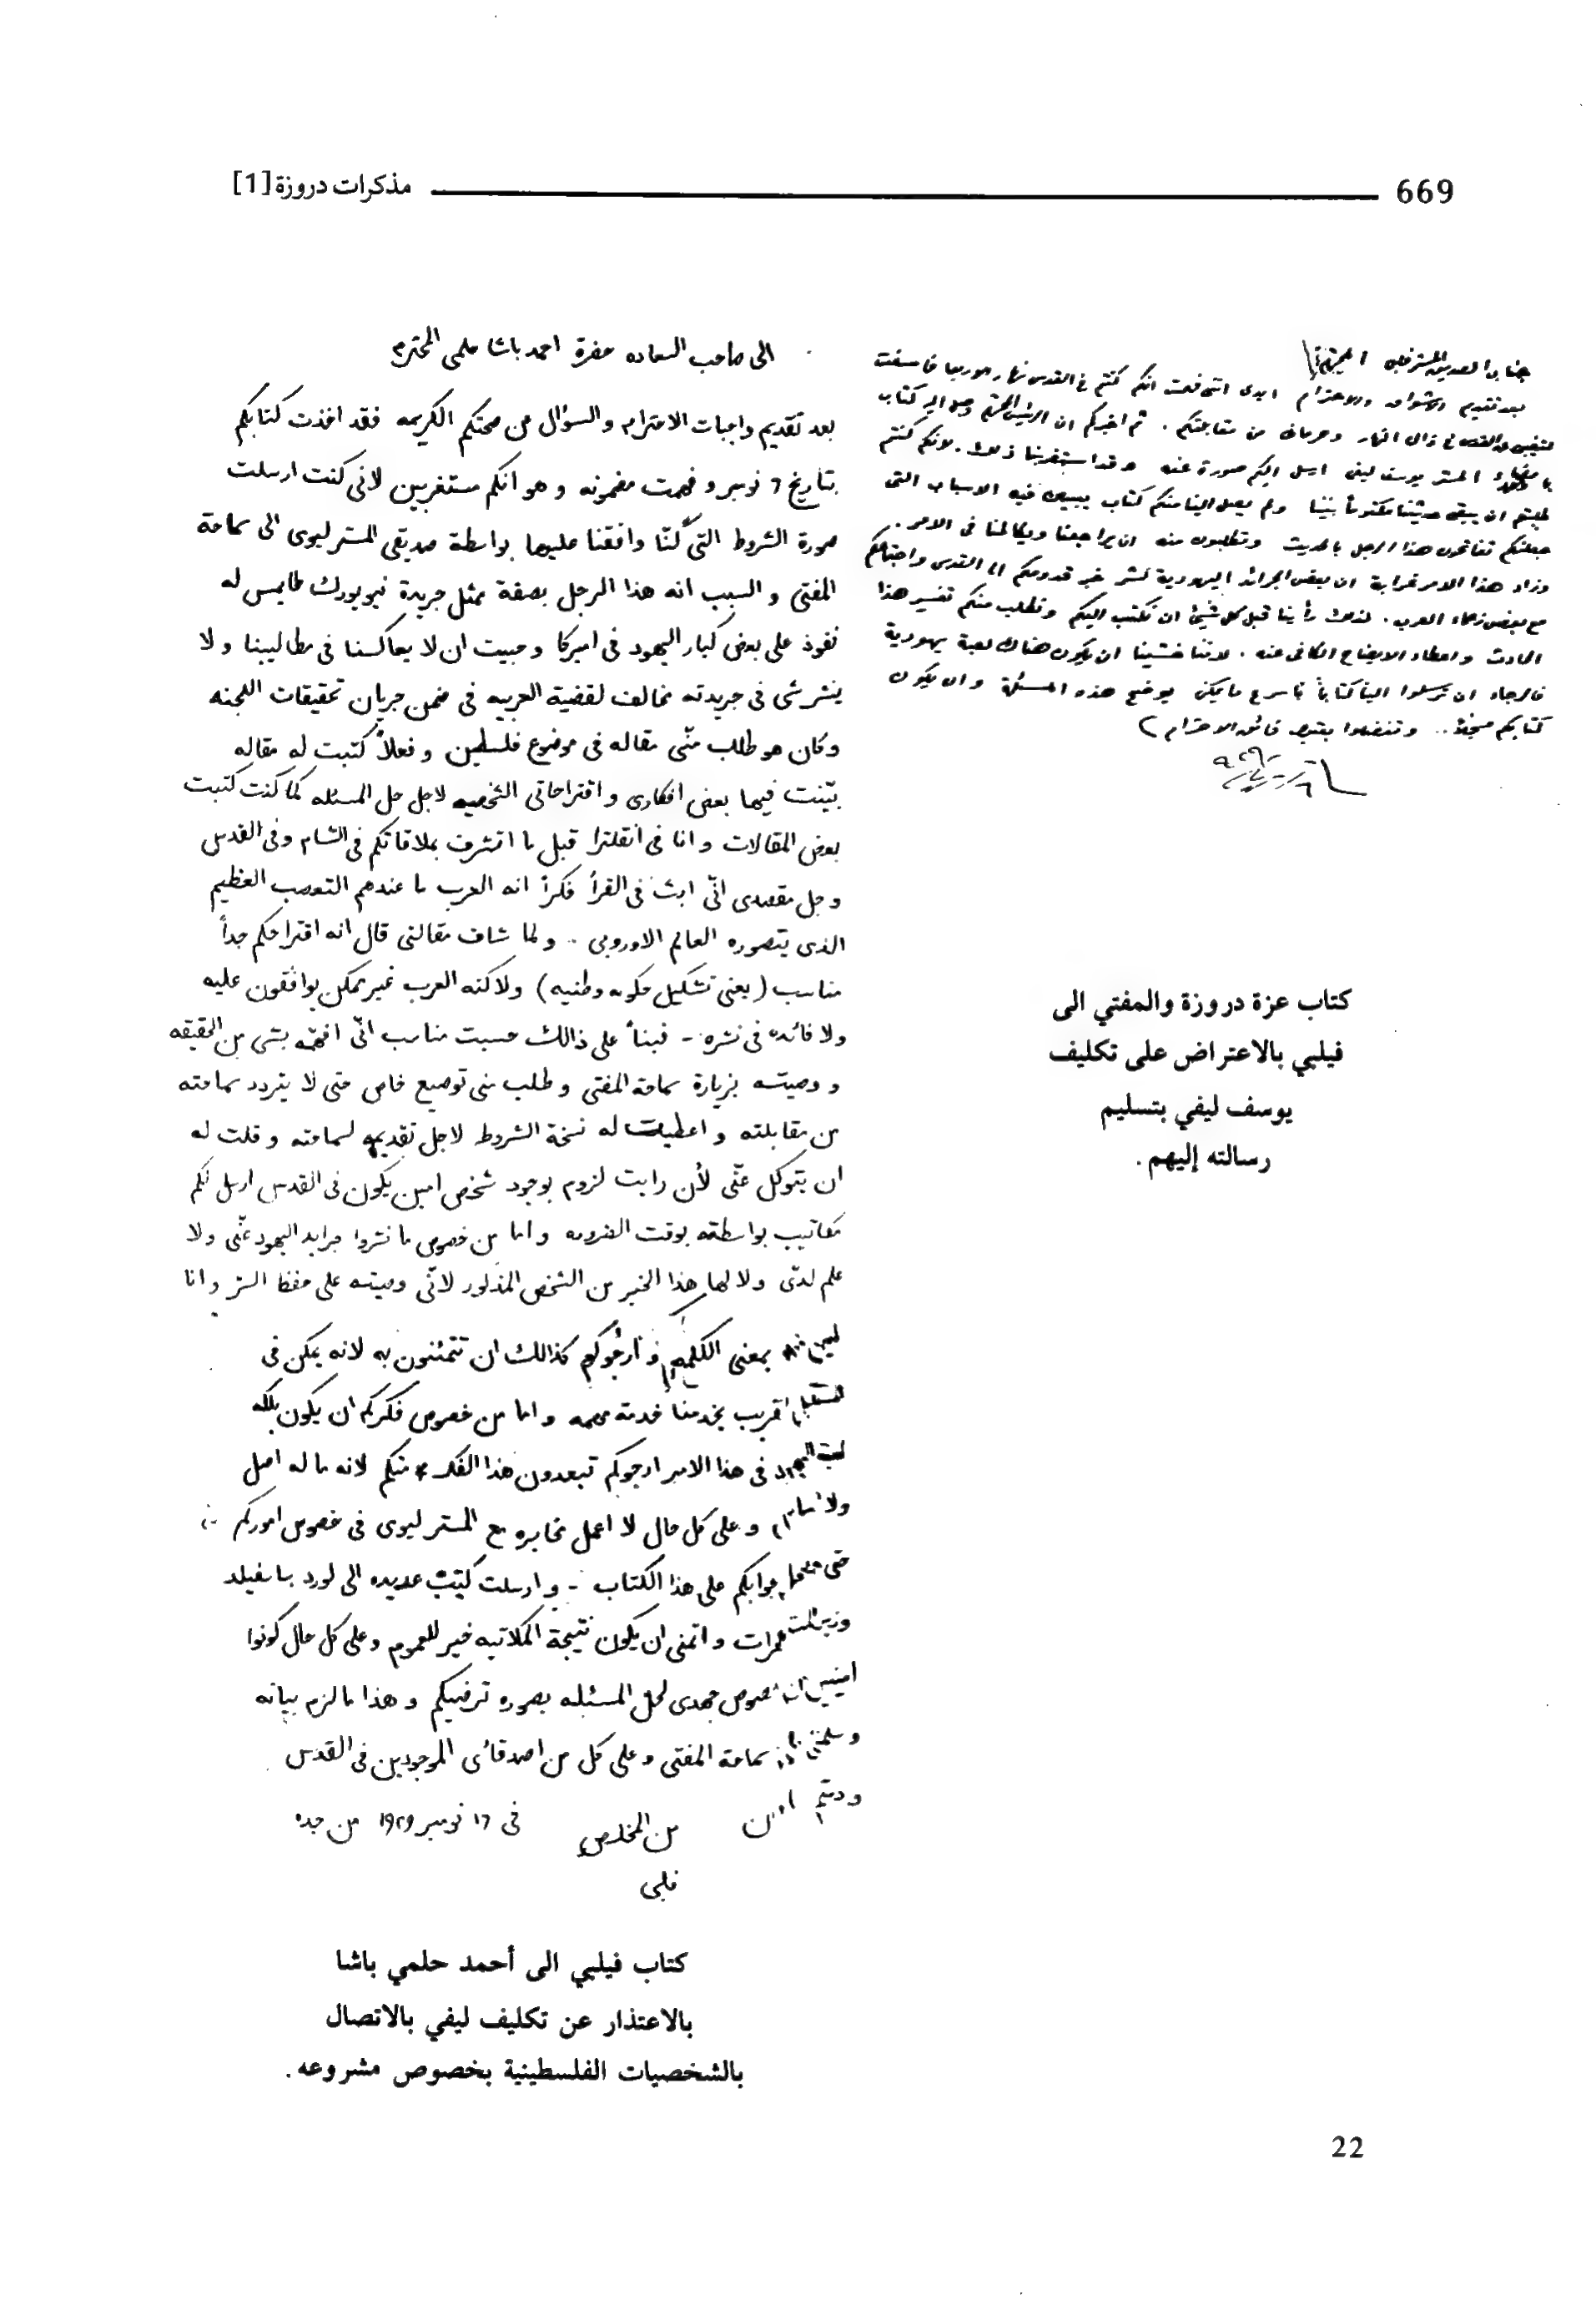 669
مذكرات دروزة [1]
جناب الصديق المستر فلبي المحترم
بعد تقديم والاحترام ابدى اننى فهمت انكم كنتم في القدس نهار
عن القدس في ذلك النهار وحرمانى من مقابلتكم . ثم اخبركم ان الرئيس وصل اليه كتاب
المستر يوسف ليفى ارسل اليكم صورة عنه وقد استغربنا ذلك . لانكم كنتم
طلبتم ان يبقى حديثنا مكتوماً بيننا ولم يصل الينا منكم كتاب يبين فيه الاسباب التى
جعلتكم تفاتحون هذا الرجل بالحديث وتطلبون منه ان يراجعنا ويكالمنا فى الامر .
وزاد هذا الامر غرابة ان بعض الجرائد اليهودية نشر خبر قدومكم الى القدس واجتماعكم
مع بعض زعماء العرب . لذلك رأينا قبل كل شيئ ان نكتب اليكم ونطلب منكم تفسير هذا
الحادث واعطاء الايضاح الكافى عنه . لاننا خشينا ان يكون هناك لعبة يهودية
فالرجاء ان ترسلوا الينا كتاباً باسرع ما يمكن يوضح هذه المسئلة وان يكون
كتابكم .. وتفضلوا بقبول فائق الاحترام
كتاب عزة دروزة والمفتي الى
فيلبي بالاعتراض على تكليف
يوسف ليفي بتسليم
رسالته إليهم .
الى صاحب السعاده حضرة احمد باشا حلمى المحترم
بعد تقديم واجبات الاحترام والسؤال عن صحتكم الكريمه فقد اخذت كتابكم
بتاريخ ٦ نومبر و فهمت مضمونه و هو انكم مستغربين لانى كنت ارسلت
صورة الشروط التى كنّا وافقنا عليها بواسطة صديقى المستر ليوى الى سماحة
المفتى و السبب انه هذا الرجل بصفة ممثل جريدة نيويورك طايمس له
نفوذ على بعض كبار اليهود فى اميركا و حبيت ان لا يعاكسنا فى مطاليبنا و لا
ينشر شى فى جريدته مخالف لقضية العربيه فى ضمن جريان تحقيقات اللجنه
وكان هو طلب منّى مقاله فى موضوع فلسطين و فعلاً كتبت له مقاله
بيّنت فيها بعض افكارى و اقتراحاتى الشخصيه لاجل حل المسئله كما كنت كتبت
بعض المقالات و انا فى انقلترا قبل ما اتشرف بملاقاتكم فى الشام وفى القدس
و جل مقصدى انّى ابث فى القرأ فكراً انه العرب ما عندهم التعصب العظيم
الذى يتصوره العالم الاوروبى .. و لما شاف مقالتى قال انه اقتراحكم جداً
مناسب (يعنى تشكيل حكومه وطنيه) ولاكنه العرب غير ممكن يوافقون عليه
ولا فائده فى نشره - فبناً على ذالك حسبت مناسب انّى افهّمه بشى من الحقيقه
و وصيته بزيارة سماحة المفتى و طلب منى توصيع خاص حتى لا يتردد سماحته
من مقابلته و اعطيت له نسخة الشروط لاجل تقديمه لسماحته و قلت له
ان يتوكل عنّى لأن رايت لزوم بوجود شخص امين يكون فى القدس ارسل لكم
مكاتيب بواسطته بوقت الضروره و اما من خصوص ما نشروا جرايد اليهود عنّى ولا
علم لدىّ ولا لها هذا الخبر من الشخص المذكور لانّى وصيته على حفظ السر و انا
بمعنى الكلمه و ارجوكم كذالك ان تتمئنون به لانه يمكن فى
قريب يخدمنا خدمة مهمه و اما من خصوص فكركم ان يكون
فى هذا الامر ارجوكم تبعدون هذا الفكر منكم لانه ما له اصل
و على كل حال لا اعمل مخابره مع المستر ليوى فى خصوص اموركم
حتى جوابكم على هذا الكتاب - و ارسلت كتب عديده الى لورد باسفيلد
و اتمنى ان يكون نتيجة المكاتبه خير للعموم و على كل حال كونوا
جهدى لحل المسئله بصوره ترضيكم و هذا ما لزم بيانه
سماحة المفتى و على كل من اصدقائى الموجودين فى القدس
و دمتم
من المخلص
فى ١٦ نومبر ١٩٢٩ من جده
فلبى
كتاب فيلبي الى أحمد حلمي باشا
بالاعتذار عن تكليف ليفي بالاتصال
بالشخصيات الفلسطينية بخصوص مشروعه .
22